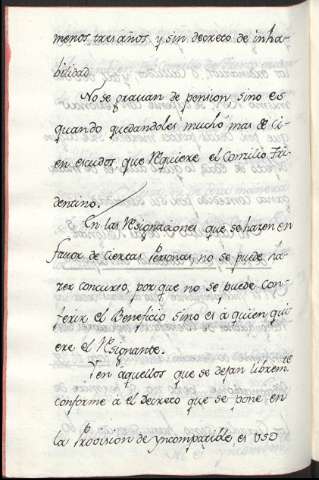 menos tres años y sin decreto de inha-
bilidad
No se gravan de pension sino es
quando quedandoles mucho mas de ci-
en escudos que Requiere el Conzilio Tri-
dentino.
En las Resignaciones que se hazen en
favor de ciertas Personas, no se puede ha-
zer concurso, por que no se puede con-
ferir el Beneficio sino es a quien qui-
ere el Resignante.
Y en aquellos que se dejan libremte
conforme â el decreto que se pone en
la Provision de yncompatible es uso